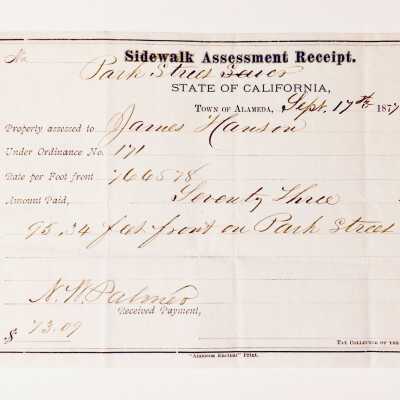 No
Sidewalk Assessment Receipt.
Park Street Sewer
STATE OF CALIFORNIA,
TOWN OF ALAMEDA, Sept. 17th 187
Property assessed to James Hanson
Under Ordinance No. 171
Rate per Foot front 766578
Amount Paid, Seventy Three
95.34 feet front on Park Street
N. W. Palmer
Received Payment,
$ 73.09
TAX COLLECTOR OF THE
"Alameda Encinal" Print.